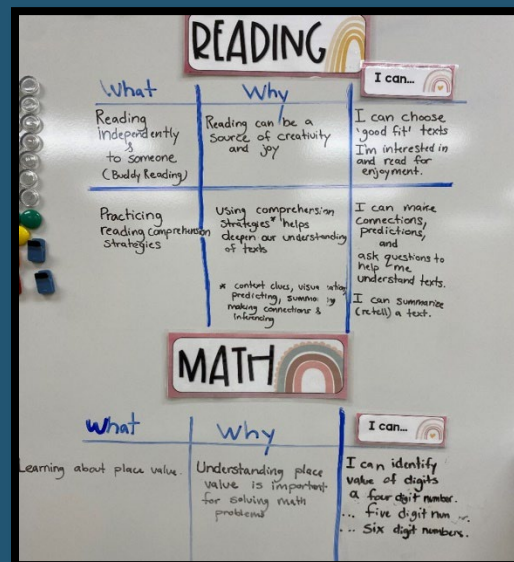 READING
What
Why
I can...
Reading
independently
&
to someone
(Buddy Reading)
Reading can be a
source of creativity
and joy
I can choose
'good fit' texts
I'm interested in
and read for
enjoyment.
Practicing
reading comprehension
strategies
Using comprehension
strategies* helps
deepen our understanding
of texts
* context clues,
predicting,
making connections &
inferencing
I can make
connections,
predictions,
and
ask questions to
help me
understand texts.
I can summarize
(retell) a text.
MATH
What
Why
I can...
Learning about place value.
Understanding place
value is important
for solving math
problems
I can identify
value of digits
a four digit number.
... five digit
... six digit numbers.